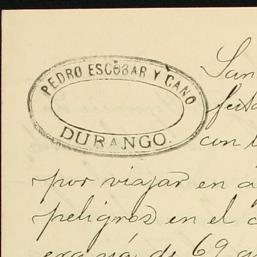 PEDRO ESCOBAR Y CANO
DURANGO.
San
con l
por viajar en a
peligros en el c
era ya de 69 a